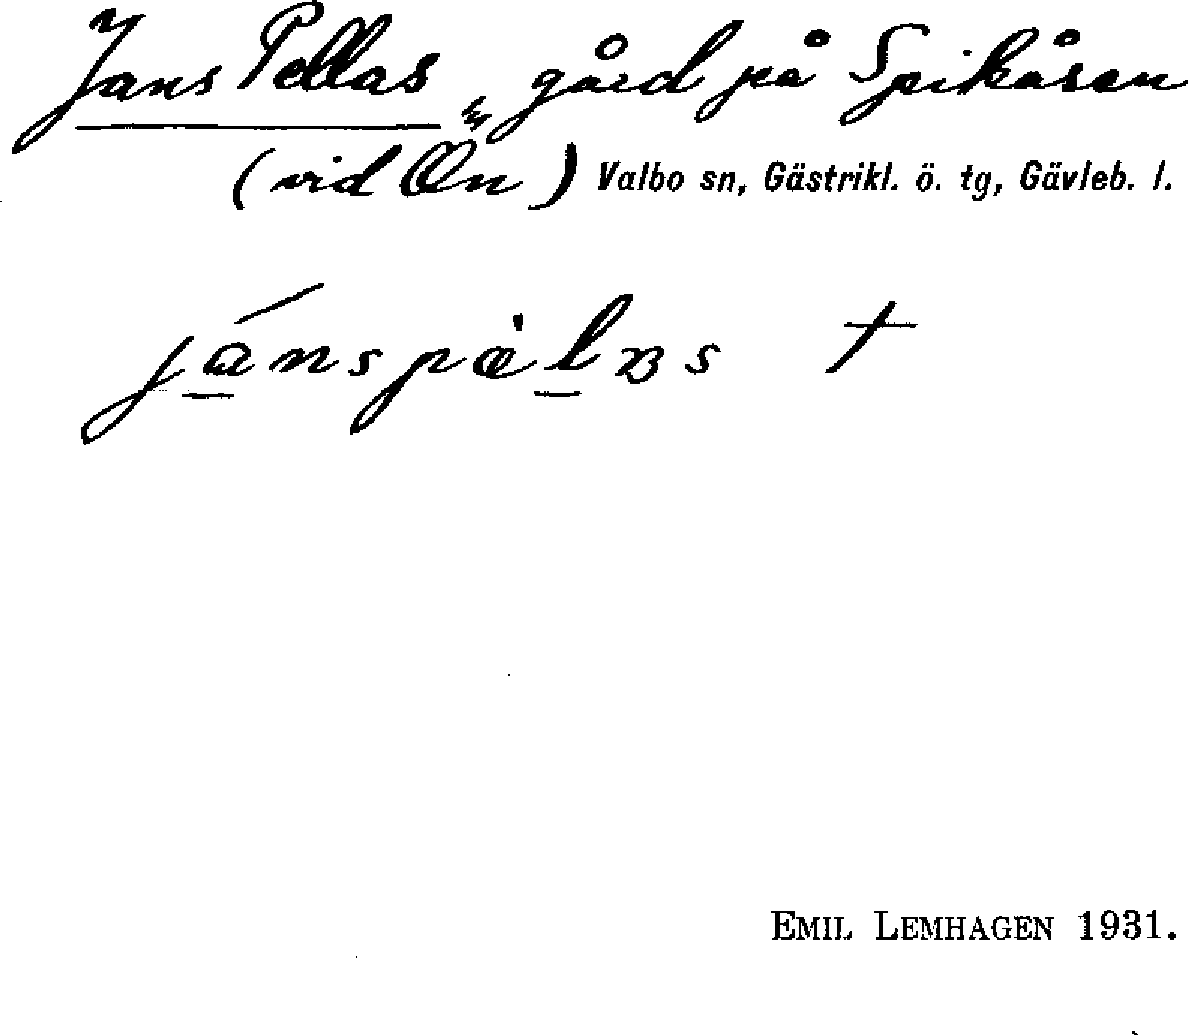 Jans Pellas, gård på Spikåsen
(vid Ön) Valbo sn, Gästrikl. ö. tg, Gävleb. l.
já̱nspæ̀ḻɐs †
EMIL LEMHAGEN 1931.